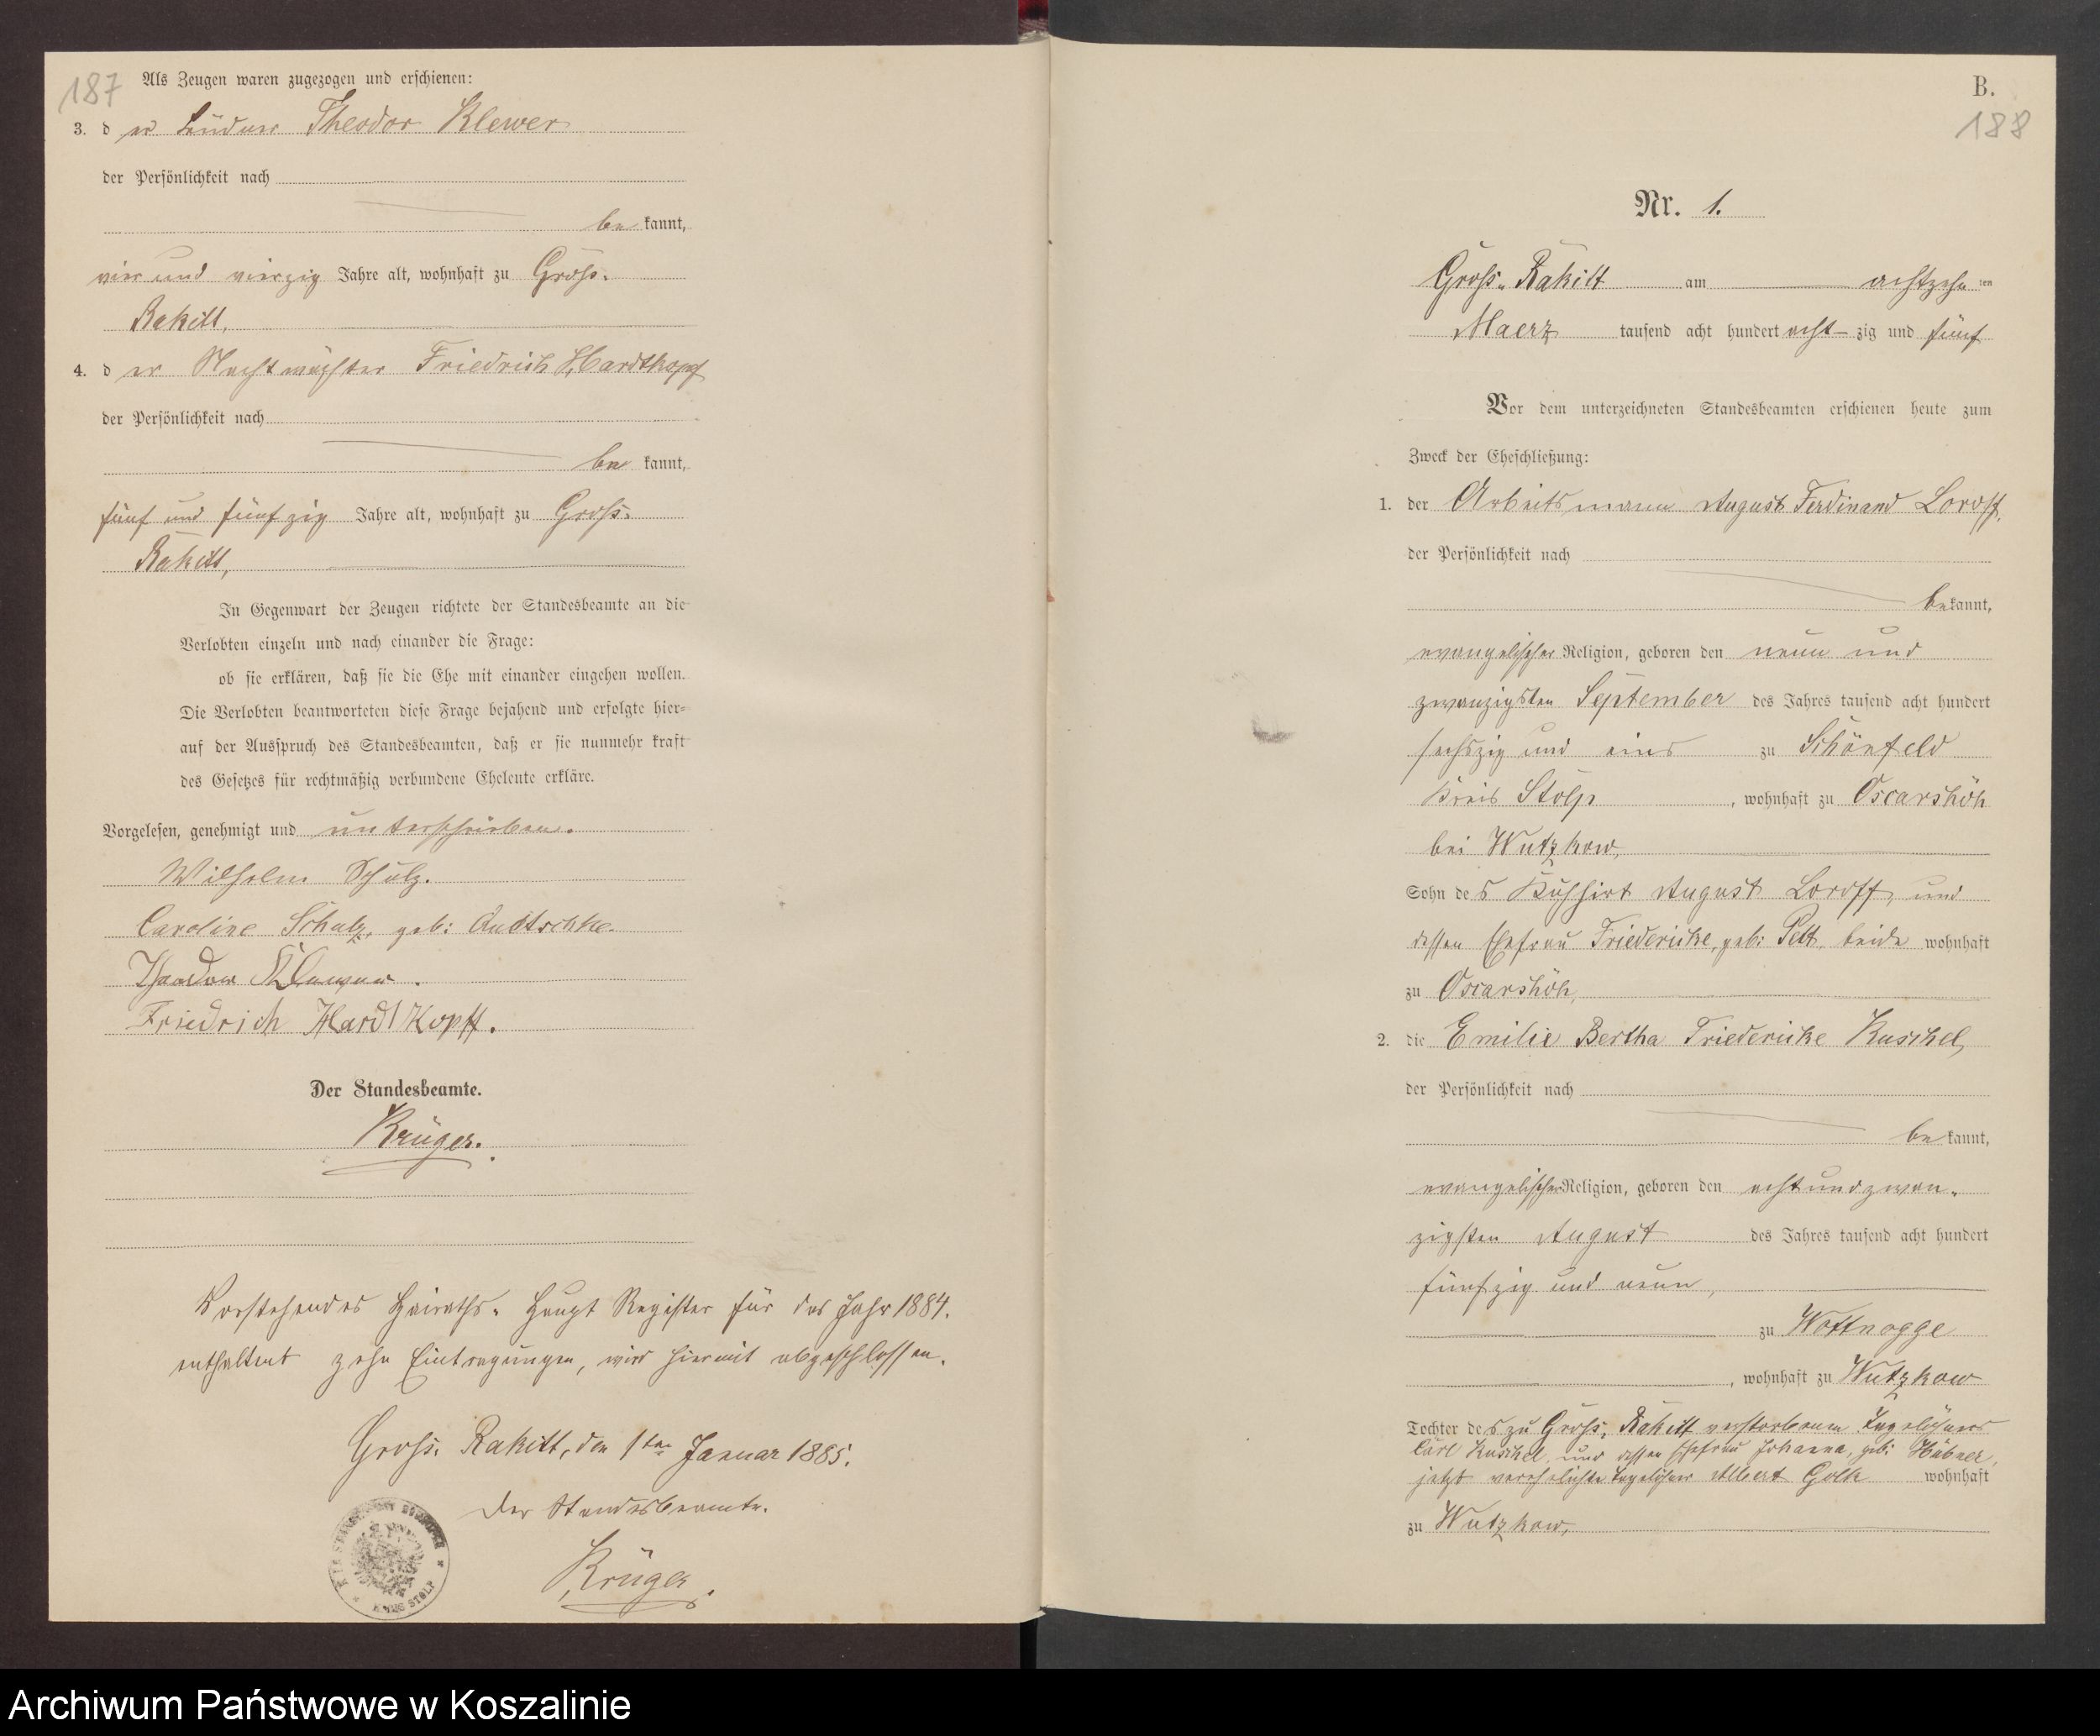 187
Als Zeugen waren zugezogen und erschienen:
3. d er Büdner Theodor Klewer
der Persönlichkeit nach
be kannt,
vier und vierzig Jahre alt, wohnhaft zu Groß-
Rakitt,
4. d er Nachtwächter Friedrich Hardtkopf
der Persönlichkeit nach
be kannt,
fünf und fünfzig Jahre alt, wohnhaft zu Groß-
Rakitt,
In Gegenwart der Zeugen richtete der Standesbeamte an die
Verlobten einzeln und nach einander die Frage:
ob sie erklären, daß sie die Ehe mit einander eingehen wollen.
Die Verlobten beantworteten diese Frage bejahend und erfolgte hier-
auf der Ausspruch des Standesbeamten, daß er sie nunmehr kraft
des Gesetzes für rechtmäßig verbundene Eheleute erkläre.
Vorgelesen, genehmigt und unterschrieben.
Wilhelm Schulz.
Caroline Schulz, geb:
Theodor Klewer.
Friedrich Hardtkopff.
Der Standesbeamte.
Krüger.
Vorstehendes Heiraths-Haupt Register für das Jahr 1884.
enthaltend zehn Eintragungen, wird hiermit abgeschlossen.
Gross-Rakitt, den 1ten Januar 1885.
Der Standesbeamte.
Krüger.
KREIS STOLP
B.
188
Nr. 1.
Gross-Rakitt am achtzehn ten
Maerz tausend acht hundert acht zig und fünf
Vor dem unterzeichneten Standesbeamten erschienen heute zum
Zweck der Eheschließung:
1. der Arbeitsmann August Ferdinand Loroff,
der Persönlichkeit nach
be kannt,
evangelischer Religion, geboren den neun und
zwanzigsten September des Jahres tausend acht hundert
sechszig und eins zu Schönfeld
Kreis Stolp, wohnhaft zu Oscarshöh
bei Wutzkow,
Sohn des Kuhhirt August Loroff, und
dessen Ehefrau Friedericke, geb: beide wohnhaft
zu Oscarshöh,
2. die Emilie Bertha Friedericke Kuschel,
der Persönlichkeit nach
be kannt,
evangelischer Religion, geboren den acht und zwan-
zigsten August des Jahres tausend acht hundert
fünfzig und neun,
zu Wottnogge
, wohnhaft zu Wutzkow
Tochter des zu Gross-Rakitt verstorbenen Tagelöhners
Carl Kuschel, und dessen Ehefrau Johanna, geb: Hübner,
jetzt verehelichte Tagelöhner Albert Golk wohnhaft
zu Wutzkow,
Archiwum Państwowe w Koszalinie